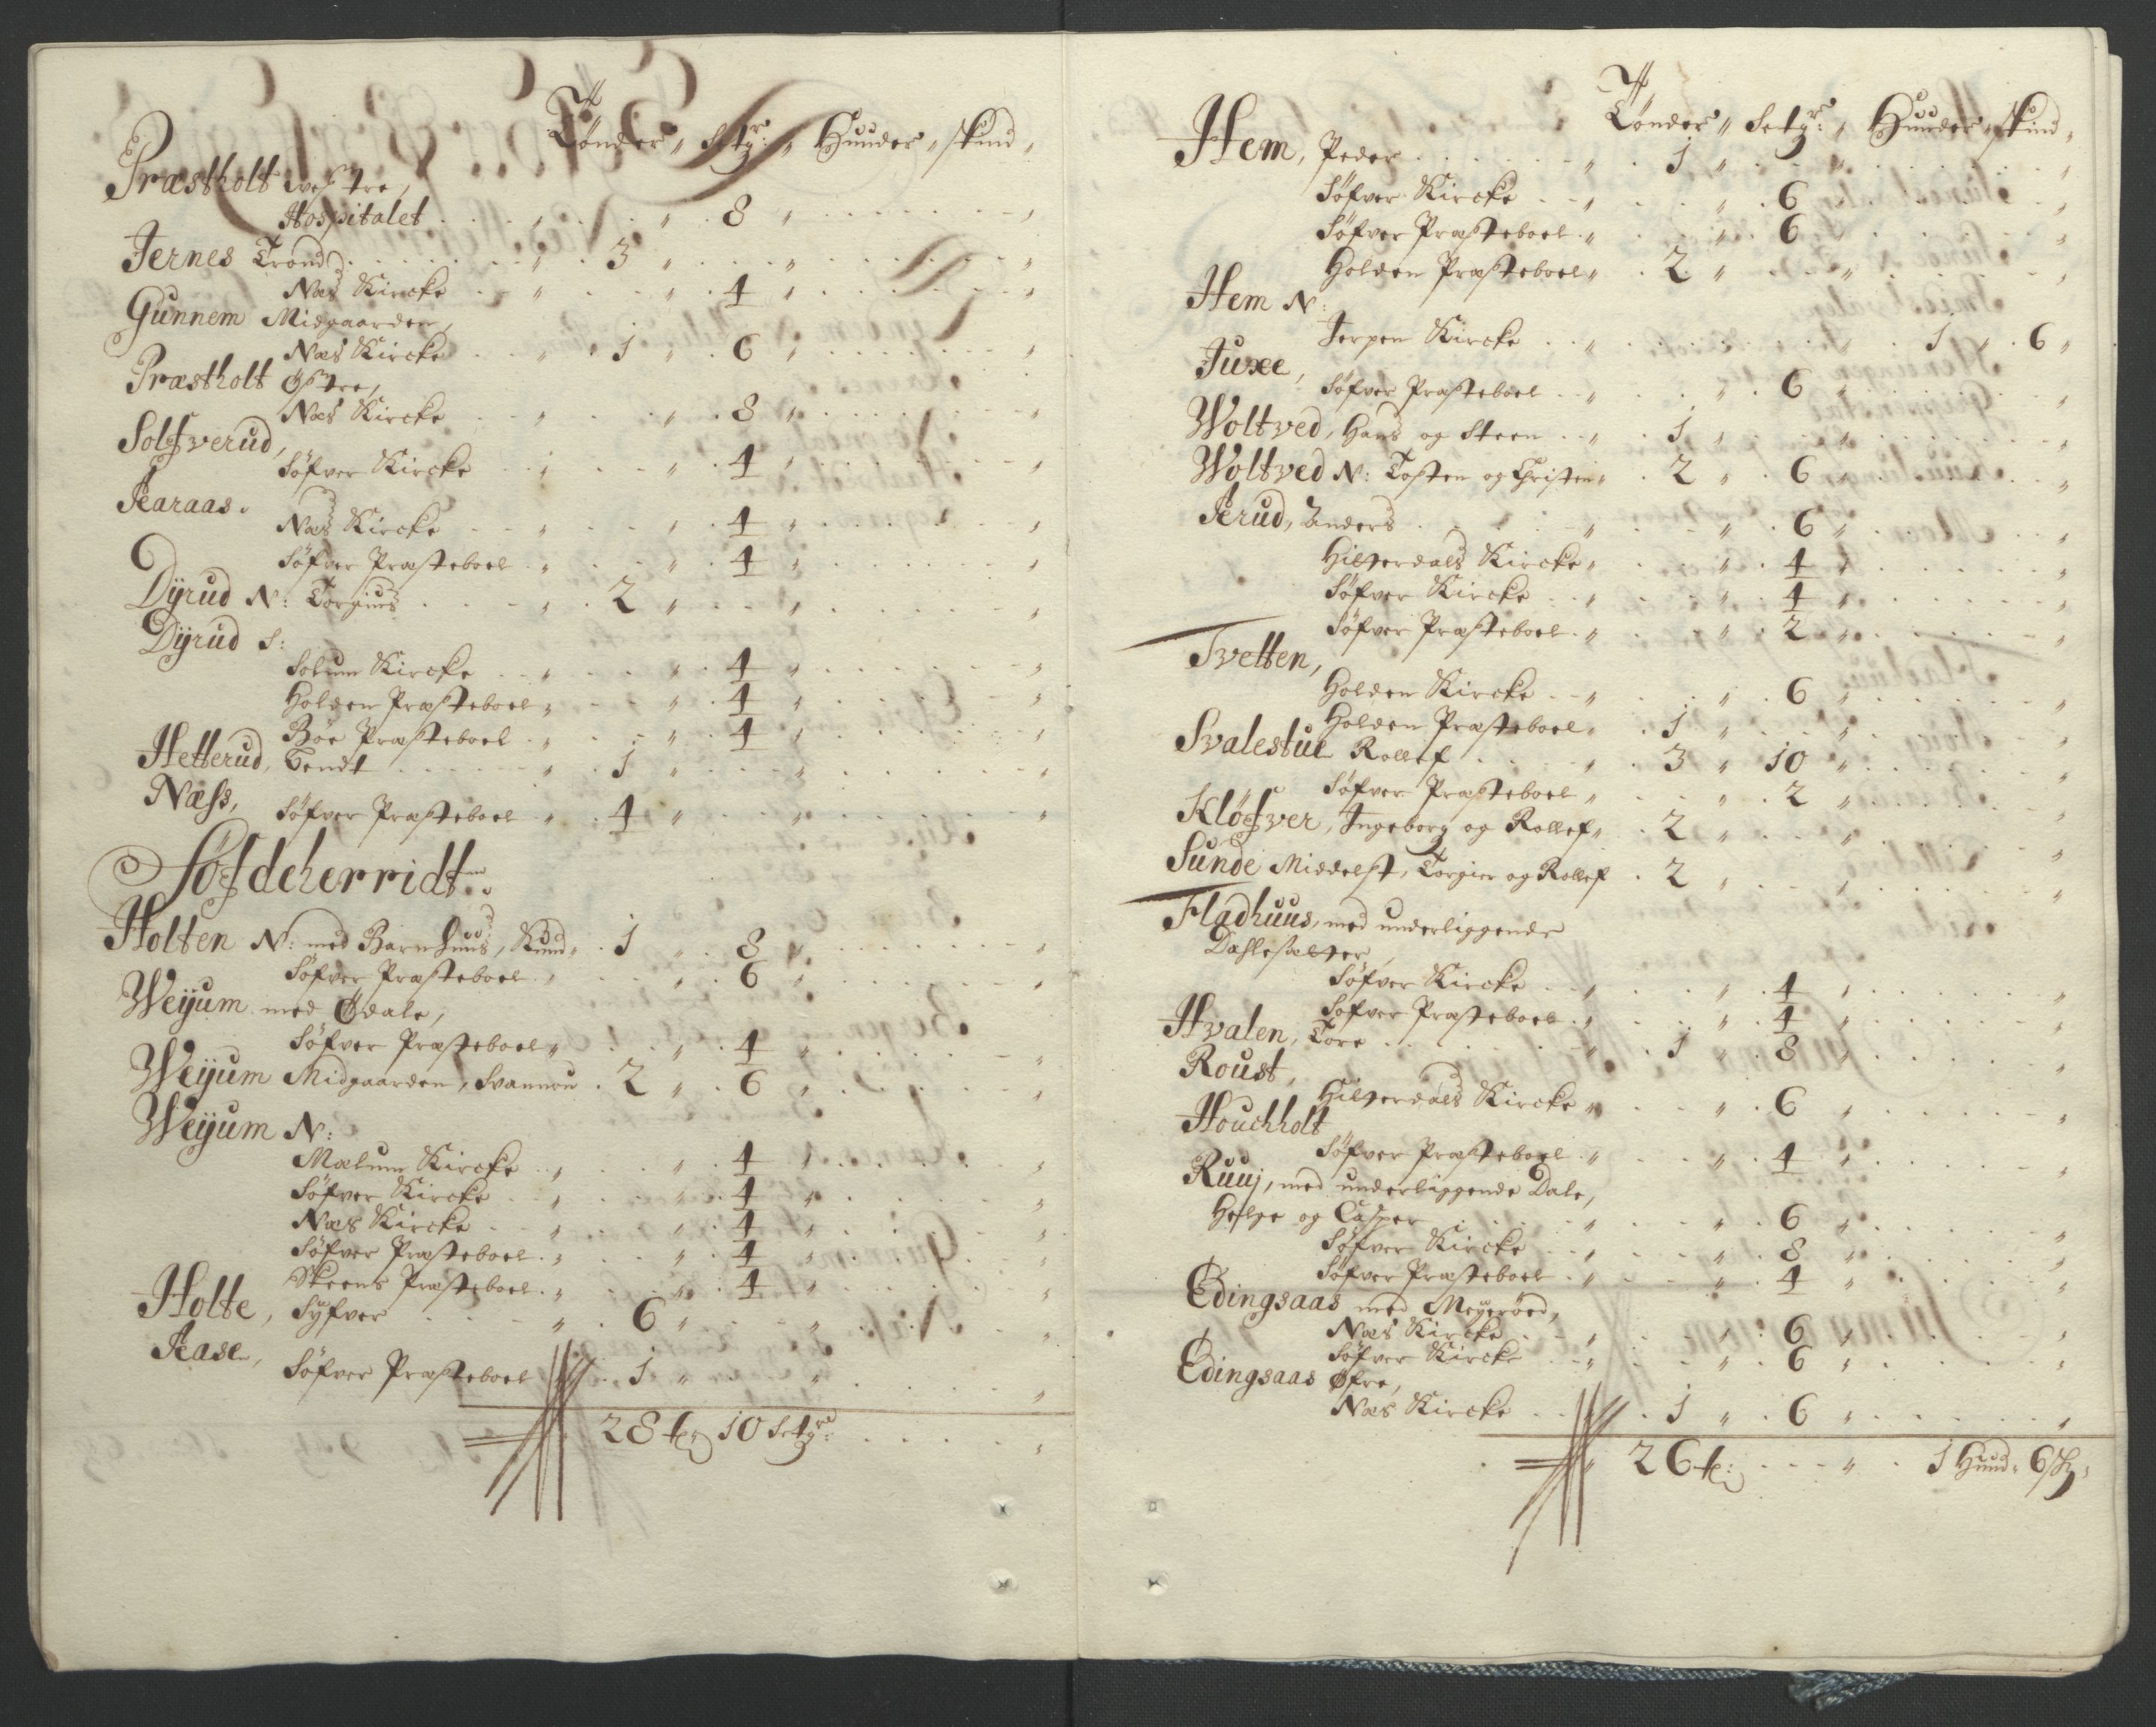 Tønder „ Setgr: „ Huuder „ skind „
Præstholt westre,
Hospitalet . . „ . . „ . 8 „ . . . „
Jernes Trond . . . „ . 3 „ . . „ . . . „
Næs Kircke . . „ . . „ . 4 „ . . . „
Gunnem Midgaarden,
Næs Kircke . . „ . 1 „ . 6 „ . . . „
Præstholt Østre,
Næs Kircke . . „ . . „ . 8 „ . . . „
Solfverud,
Søfver Kircke . . „ . . „ . 4 „ . . . „
Aaraas.
Næs Kircke . . „ . . „ . 4 „ . . . „
Søfver Præsteboel . „ . . „ . 4 „ . . . „
Dÿrud N: Torgiuus . . . „ . 2 „ . . „ . . . „
Dÿrud S:
Solum Kircke . . „ . . „ . 4 „ . . . „
Holden Præsteboel „ . . „ . 4 „ . . . „
Bøe Præsteboel . „ . . „ . 4 „ . . . „
Hetterud, Tendt . . . „ . 1 „ . . „ . . . „
Næss,
Søfver Præsteboel . „ . 4 „ . . „ . . . „
Søfdeherridt.
Holten N: med Barnhuus, Knud „ . 1 „ . 8 „ . . . „
Søfver Præsteboel . „ . . „ . 6 „ . . . „
Weÿum med Ødale,
Søfver Præsteboel „ . . „ . 4 „ . . . „
Weÿum Midgaarden, Svannou . 2 „ . 6 „ . . . „
Weÿum N:
Mælum Kircke . . „ . . „ . 4 „ . . . „
Søfver Kircke . . „ . . „ . 4 „ . . . „
Næs Kircke . . „ . . „ . 4 „ . . . „
Søfver Præsteboel . „ . . „ . 4 „ . . . „
Skeens Præsteboel . „ . . „ . 4 „ . . . „
Holte, Syfver . . . „ . 6 „ . . „ . . . „
Aase,
Søfver Præsteboel . 1 „ . . „ . . . „
28 tr 10 Setgr: . . . „
Tønder „ Setgr: „ Huuder „ skind „
Hem, Peder . . . „ . 1 „ . . „ . . . „
Søfver Kircke . . „ . . „ . 6 „ . . . „
Søfver Præsteboel . „ . . „ . 6 „ . . . „
Holden Præsteboel „ . 2 „ . . „ . . . „
Hem N:
Jerpen Kircke . . „ . . . . . 1 „ . 6 „
Juxe,
Søfver Præsteboel . . „ . . „ . 6 „ . . . „
Woltved, Hans og Steen . . „ . 1 „ . . „ . . . „
Woltved N: Tosten og Christen „ . 2 „ . 6 „ . . . „
Aerud, Anders . . . „ . . „ . 6 „ . . . „
Hilterdals Kircke „ . . „ . 4 „ . . . „
Søfver Kircke . . „ . . „ . 4 „ . . . „
Søfver Præsteboel . „ . . „ . 2 „ . . . „
Tvetten,
Holden Kircke . . „ . . „ . 6 „ . . . „
Holden Præsteboel „ . 1 „ . . „ . . . „
Svalestul Rollef . . . „ . 3 „ 10 „ . . . „
Søfver Præsteboel „ . . „ . 2 „ . . . „
Kløfver, Ingeborg og Rollef „ . 2 „ . . „ . . . „
Sunde Middelst, Torgier og Rollef . 2 „ . . „ . . . „
Fladhuus, med underliggende
Dahlesæter,
Søfver Kircke . . „ . . „ . 4 „ . . . „
Søfver Præsteboel . „ . . „ . 4 „ . . . „
Hvalen, Tore . . . „ . 1 „ . 8 „ . . . „
Roust,
Hilterdals Kircke „ . . „ . 6 „ . . . „
Houchholt
Søfver Præsteboel . „ . . „ . 4 „ . . . „
Ruuj, med underliggende Dale,
Helge og Casper . . . „ . . „ . 6 „ . . . „
Søfver Kircke . . „ . . „ . 8 „ . . . „
Søfver Præsteboel . „ . . „ . 4 „ . . . „
Edingsaas med Meyerøed,
Næs Kircke . . „ . . „ . 6 „ . . . „
Søfver Kircke . . „ . . „ . 6 „ . . . „
Edingsaas Øfre,
Næs Kircke . . . 1 „ . 6 „ . . . „
26 tr: . . . „ . 1 Huud: 6 sk: